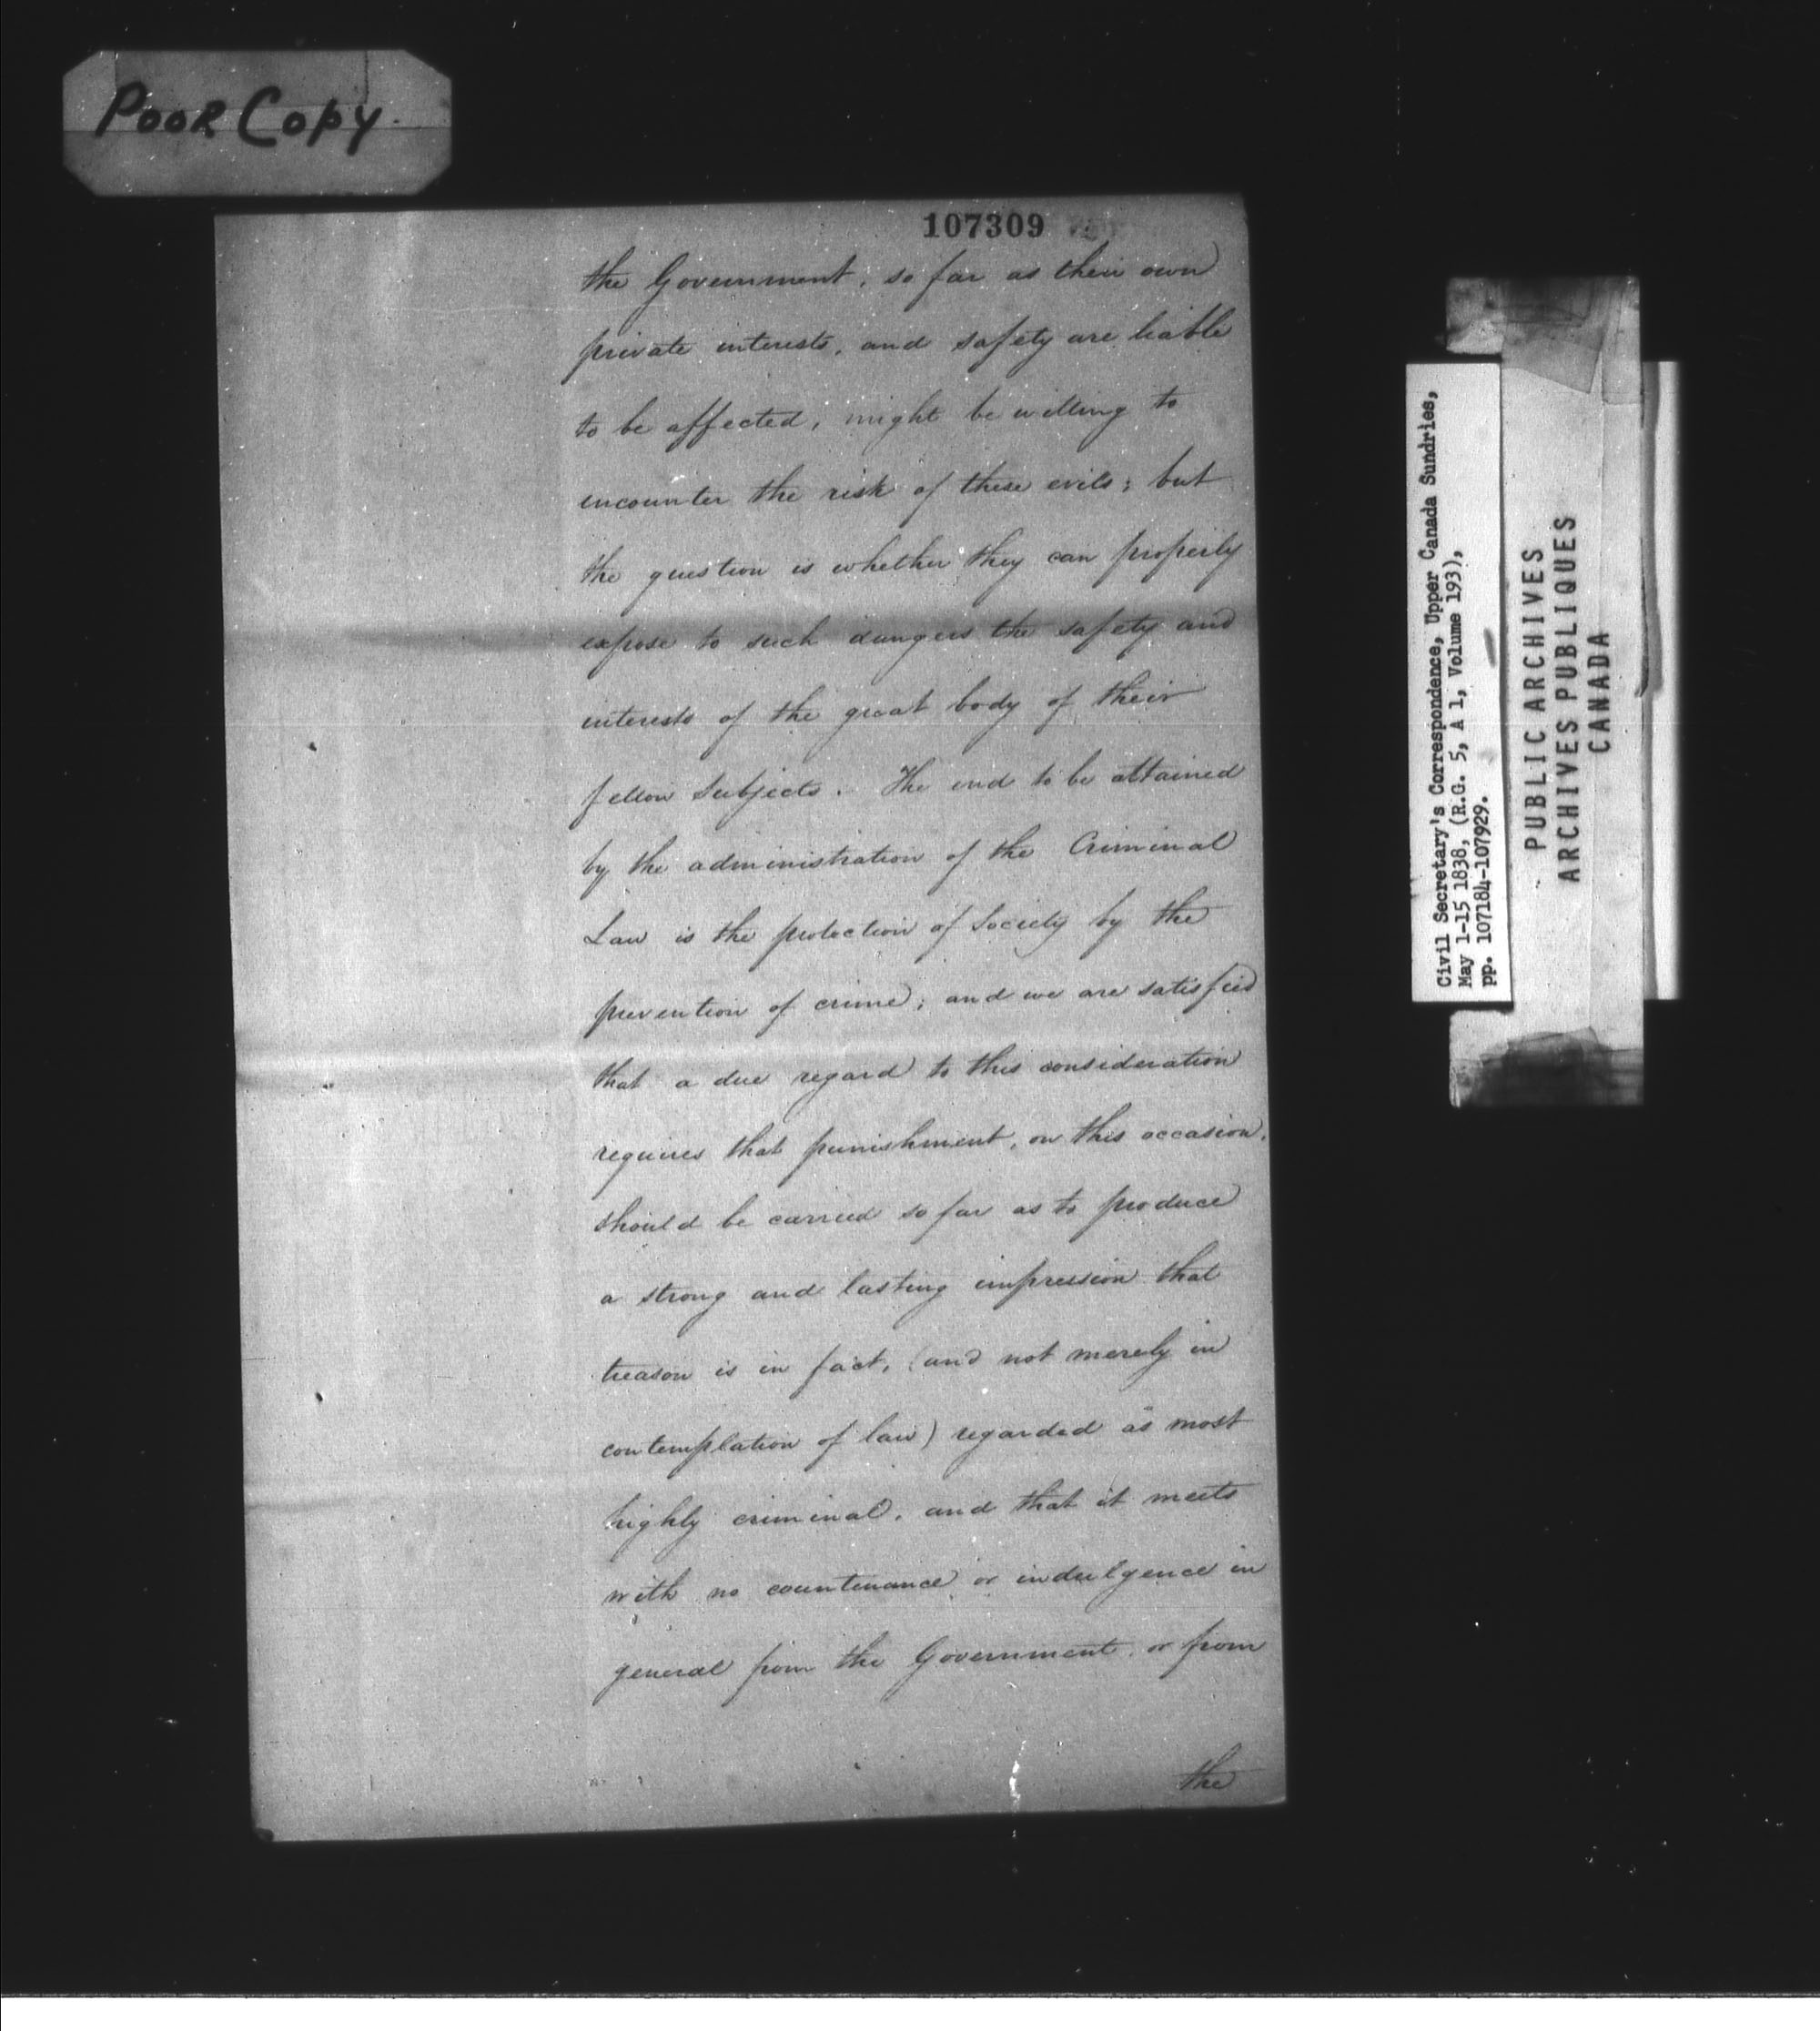 Poor Copy.
107309
the Government, so far as their own
private interests, and safety are liable
to be affected, might be willing to
encounter the risk of these evils; but
the question is whether they can properly
expose to such dangers the safety and
interests of the great body of their
fellow Subjects. The end to be attained
by the administration of the Criminal
Law is the protection of Society by the
prevention of crime; and we are satisfied
that a due regard to this consideration
requires that punishment, on this occasion,
should be carried so far as to produce
a strong and lasting impression that
treason is in fact, (and not merely in
contemplation of law) regarded as most
highly criminal, and that it meets
with no countenance or indulgence in
general from the Government, or from
the
Civil Secretary's Correspondence, Upper Canada Sundries,
May 1-15 1838, (R.G. 5, A 1, Volume 193),
pp. 107184-107929.
PUBLIC ARCHIVES
ARCHIVES PUBLIQUES
CANADA